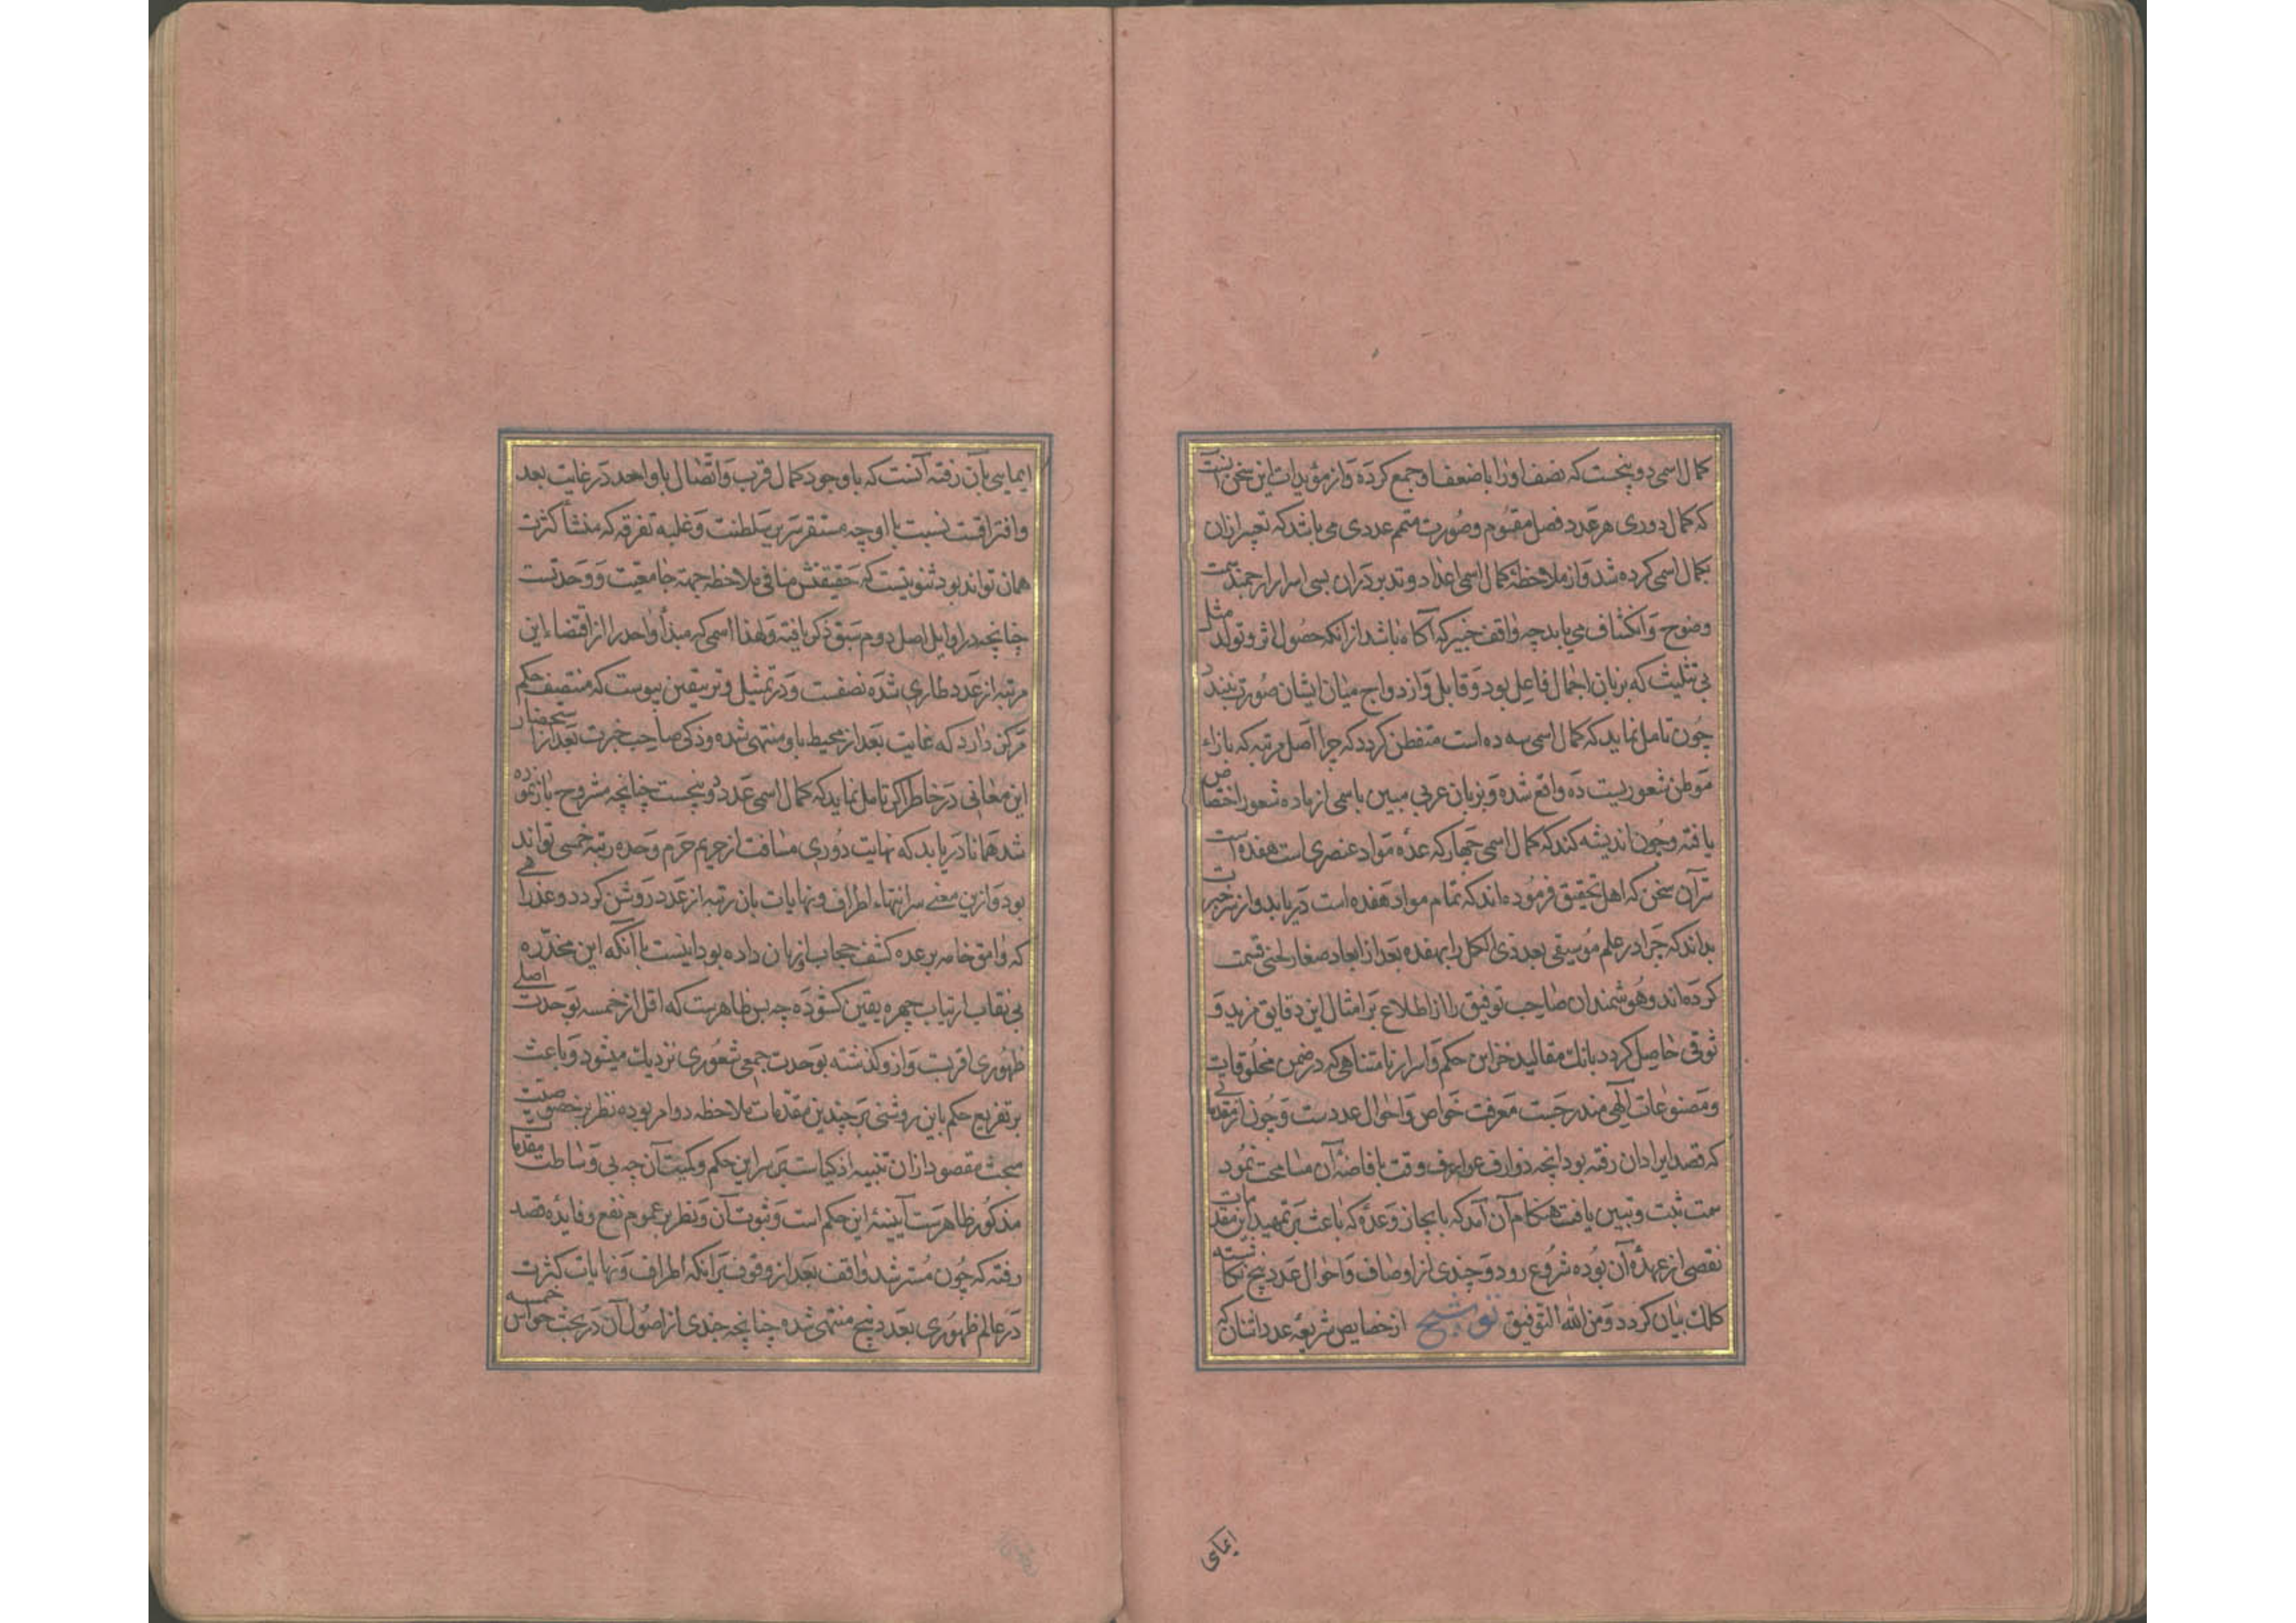 کمال اسمی دو پنجست که نصف او را با ضعف او جمع کرده و از مؤیدات این سخن آنست
که کمال دوری هر عدد فصل مقوم و صورت متمم عددی می باشد که تعبیر ازان
بکمال اسمی کرده شد و از ملاحظهٔ کمال اسمی اعداد و تدبر دران بسی اسرار ارجمند سمت
وضوح و انکشاف می یابد چه واقف خبیر که آکاه باشد از انکه حصول اثر و تولد مثل
بی تثلیث که بزبان اجمال فاعل بود و قابل و ازدواج میان ایشان صورت نبندد
چون تامل نماید که کمال اسمی سه ده است متفطن کردد که چرا اصل مرتبه که بازاء
موطن شعوریست ده واقع شده و بزبان عربی مبین باسمی از ماده شعور اختصاص
یافته و چون اندیشه کند که کمال اسمی چهار که عدهٔ مواد عنصری است هفده است
سر آن سخن که اهل تحقیق فرموده اند که تمام مواد هفده است دریابد و از سر خبرت
بداند که چرا در علم موسیقی بعد ذی الکل را بهفده بعد از ابعاد صغار لحنی قسمت
کرده اند و هوشمندان صاحب توفیق را از اطلاع بر امثال این دقایق مزید و
ثوقی حاصل کردد بانک مقالید خزاین حکم و اسرار نامتناهی که در ضمن مخلوقات
و مصنوعات آلهی مندرجست معرفت خواص و احوال عددست و چون از مقدماتی
که قصد ایراد ان رفته بود انچه ذوارف عوارف وقت بافاضهٔ آن مسامحت نمود
سمت ثبت و تبیین یافت هنکام آن آمد که بانجاز وعدهٔ که باعث بر تمهید این مقدمات
نقصی از عهدهٔ آن بوده شروع رود و چندی از اوصاف و احوال عدد پنج نکاشته
کلک بیان کردد و من الله التوفیق توشیح از خصایص شریعهٔ عدد اثنان که
ایمایی
ایمایی بآن رفته آنست که با وجود کمال قرب و اتصال با واحد در غایت بعد
و افتراقست نسبت با او چه مستقر سریر سلطنت و غلبه تفرقه که منشأ کثرت
همان تواند بود ثنویتست که حقیقتش منافی ملاحظه جهة جامعیت و وحدتست
چنانچه در اوایل اصل دوم سبق ذکر یافته و لهذا اسمی که مبدأ واحد را از اقتضاء این
مرتبه از عدد طاری شده نصفست و در تمثیل و تر بیقین پیوست که منتصف حکم
مرکز دارد که غایت بعد از محیط باو منتهی شده و ذکی صاحب خبرت بعد از استحضار
این معانی در خاطر اکر تامل نماید که کمال اسمی عدد دو پنجست چنانچه مشروح باز نموده
شد همانا دریابد که نهایت دوری مسافت از حریم حرم وحده رتبه خمسی تواند
بود و ازین معنی سر انتهاء اطراف و نهایات بان رتبه از عدد روشن کردد و عذرایی
که وامق خامه بر عده کشف حجاب او زبان داده بود اینست با آنکه این مخدره
بی نقاب ارتیاب چهره یقین کشوده چه بس ظاهرست که اقل از خمسه بوحدت اصلی
ظهوری اقربست و ازو کذشته بوحدت جمعی شعوری نزدیک میشود و باعث
بر تفریع حکم باین روشنی بر چندین مقدمات ملاحظه دو امر بوده نظر بر خصوصیت
مبحث مقصود ازان تنبیه اذکیاست بر سر این حکم و لمیت آن چه بی وساطت مقدمات
مذکور ظاهرست آینیهٔ این حکم است و ثبوت آن و نظر بر عموم نفع و فایده قصد
رفته که چون مسترشد واقف بعد از وقوف بر انکه اطراف و نهایات کثرت
در عالم ظهوری بعدد پنج منتهی شده چنانچه چندی از اصول آن در بحث حواس خمسه